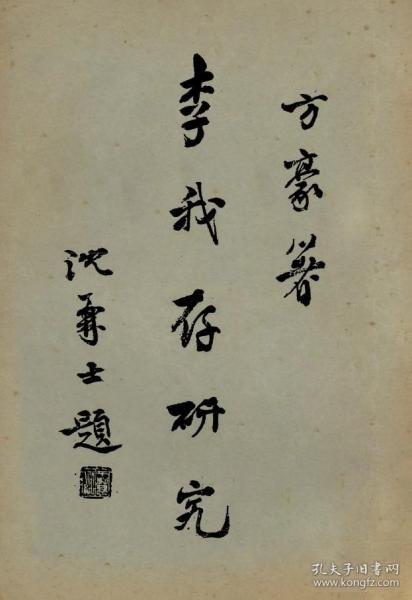 方豪著
李我存研究
沈兼士題
孔夫子旧书网
www.kongfz.com